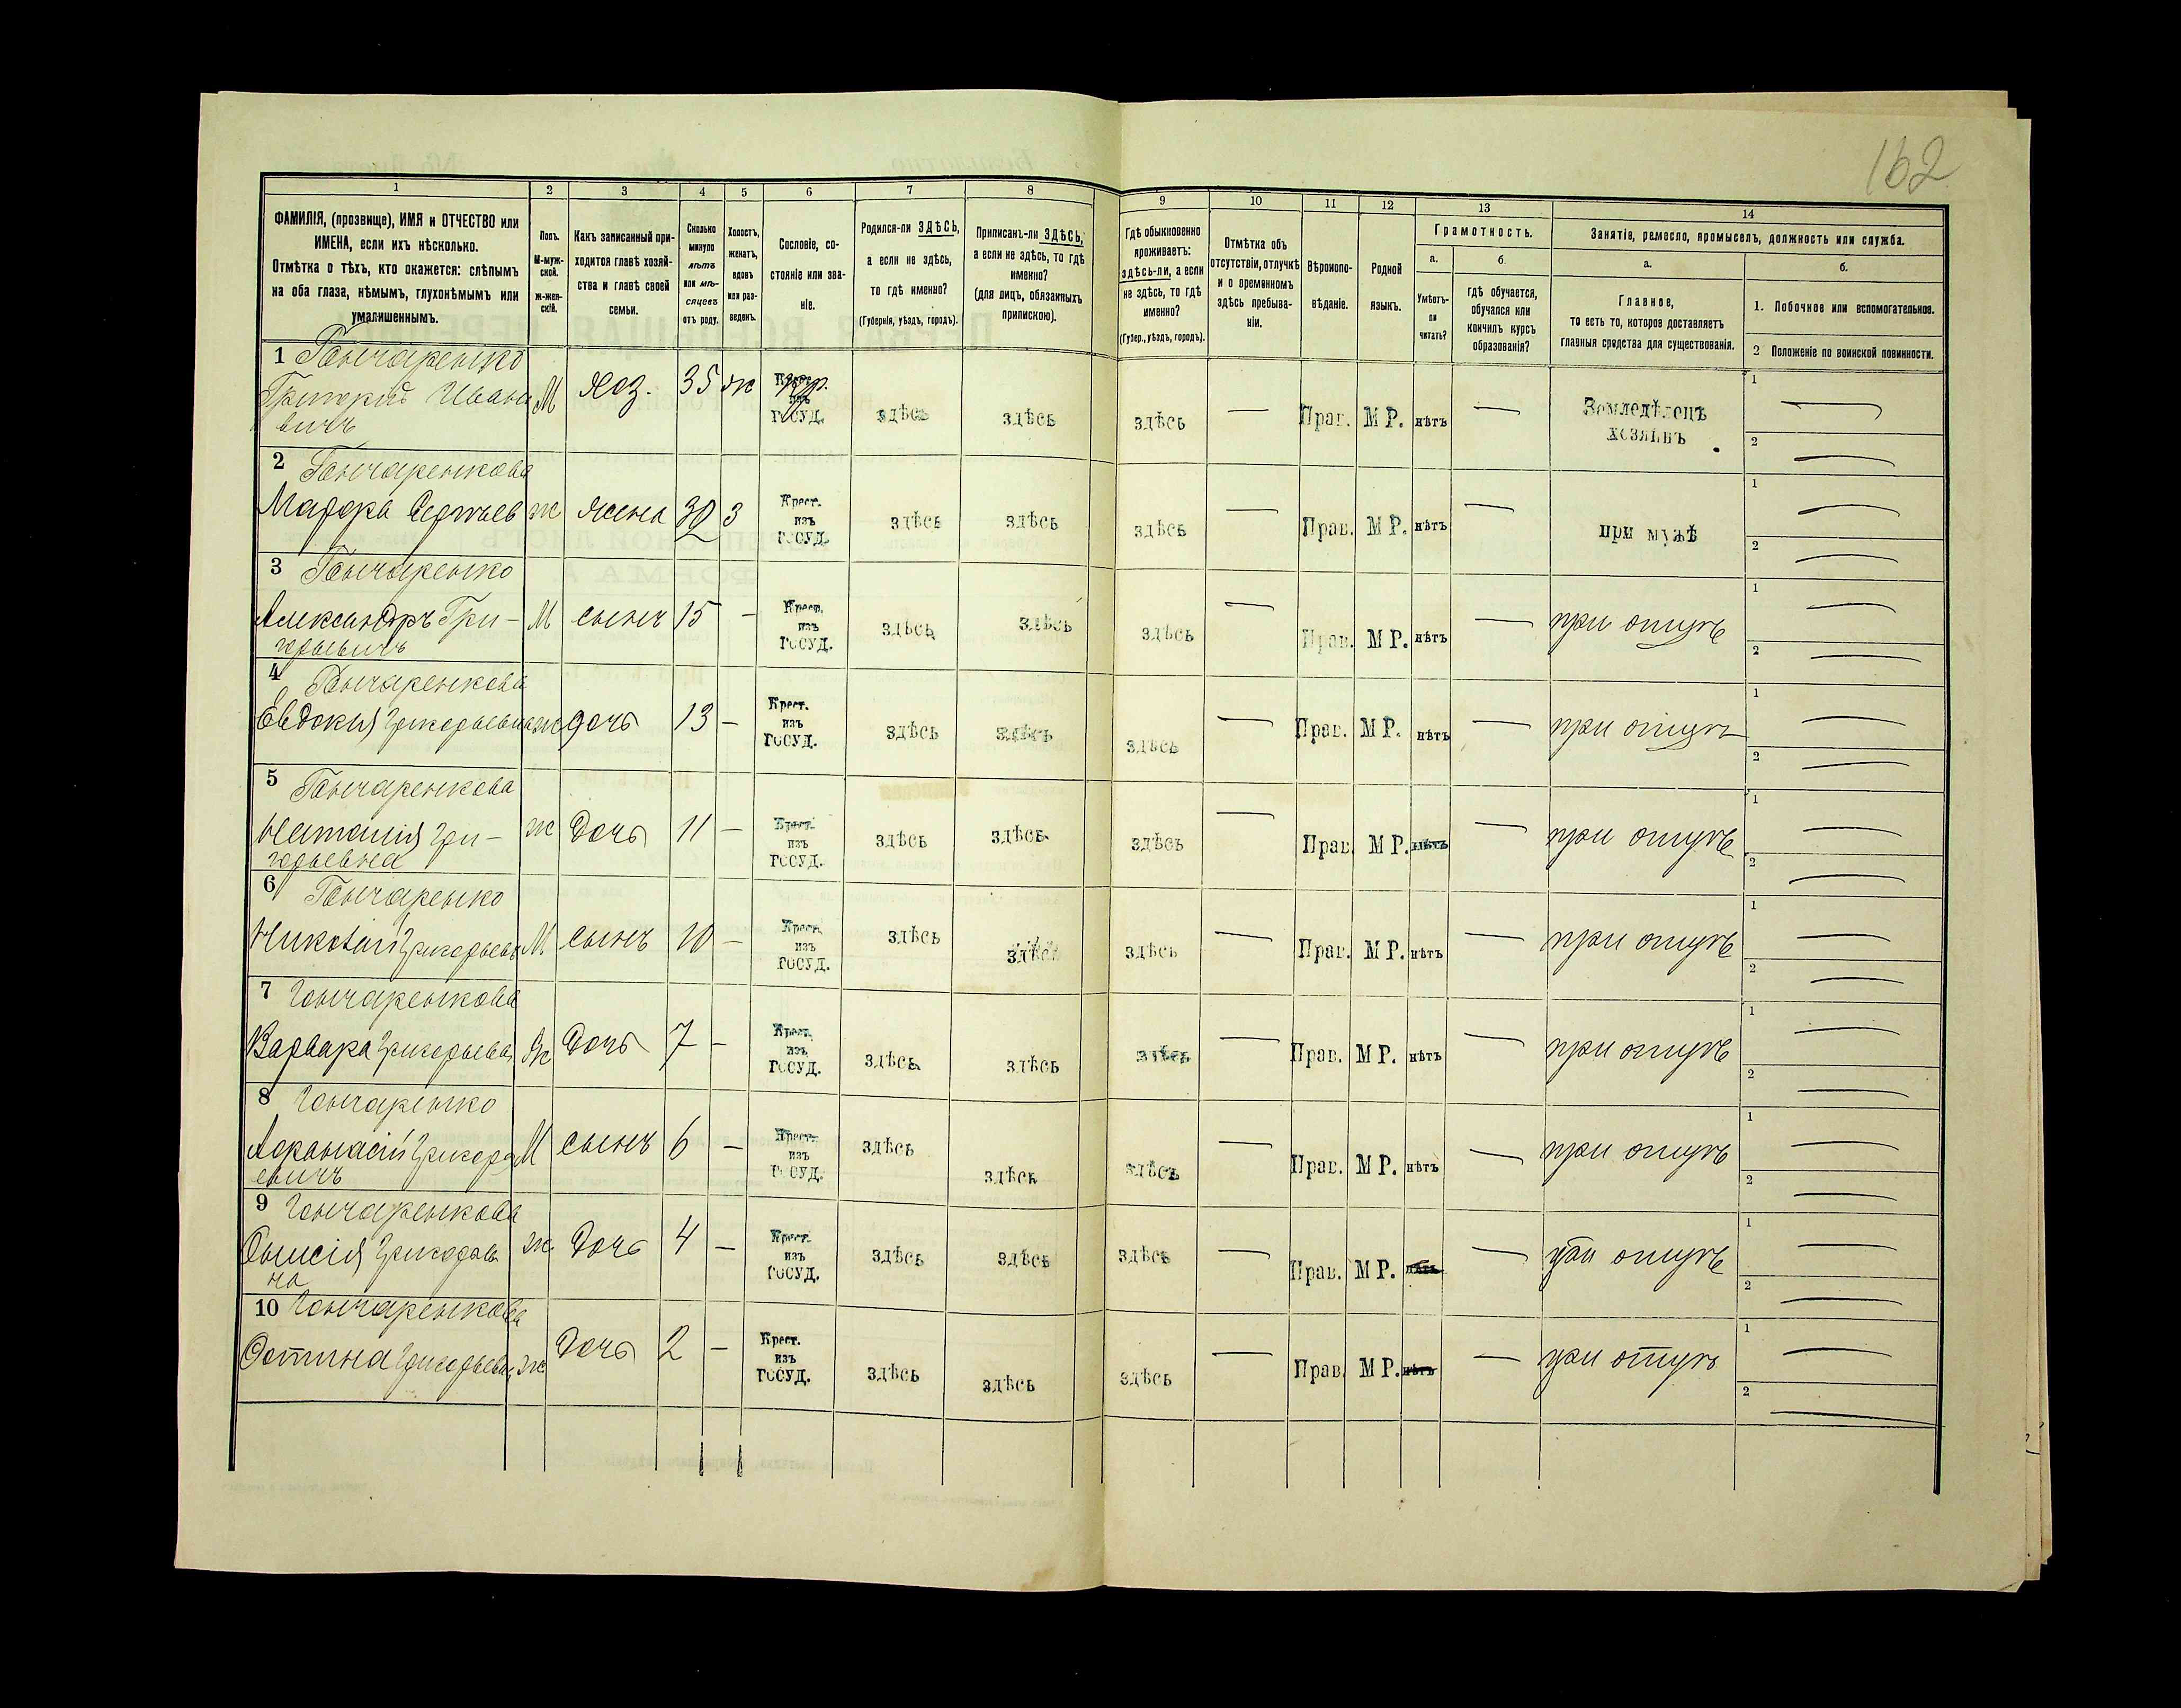 162
1 2 3 4 5 6 7 8 9 10 11 12 13 14
ФАМИЛІЯ, (прозвище), ИМЯ и ОТЧЕСТВО или
ИМЕНА, если ихъ нѣсколько.
Отмѣтка о тѣхъ, кто окажется: слѣпымъ
на оба глаза, нѣмымъ, глухонѣмымъ или
умалишеннымъ.
Полъ.
М-муж-
ской.
ж-жен-
скій.
Какъ записанный при-
ходится главѣ хозяй-
ства и главѣ своей
семьи.
Сколько
минуло
лѣтъ
или мѣ-
сяцевъ
отъ роду.
Холостъ,
женатъ,
вдовъ
или раз-
веденъ.
Сословіе, со-
стояніе или зва-
ніе.
Родился-ли ЗДѢСЬ,
а если не здѣсь,
то гдѣ именно?
(Губернія, уѣздъ, городъ).
Приписанъ-ли ЗДѢСЬ,
а если не здѣсь, то гдѣ
именно?
(для лицъ, обязанныхъ
припискою).
Гдѣ обыкновенно
проживаетъ:
здѣсь-ли, а если
не здѣсь, то гдѣ
именно?
(Губер., уѣздъ, городъ).
Отмѣтка объ
отсутствіи, отлучкѣ
и о временномъ
здѣсь пребыва-
ніи.
Вѣроиспо-
вѣданіе.
Родной
языкъ.
Грамотность.
а.
Умѣетъ-
ли
читать?
б.
гдѣ обучается,
обучался или
кончилъ курсъ
образованія?
Занятіе, ремесло, промыселъ, должность или служба.
а.
Главное,
то есть то, которое доставляетъ
главныя средства для существованія.
б.
1. Побочное или вспомогательное.
2 Положеніе по воинской повинности.
1 Гончаренко
Григорій Ивано
вичъ
М Хоз. 35 ж
Крест.
изъ
ГОСУД.
здѣсь здѣсь здѣсь — Прав. М Р. нѣтъ —
Земледѣлецъ
хозяинъ
1 —
2 —
2 Гончаренкова
Марфа Сергѣев ж жена 30 З
Крест.
изъ
ГОСУД.
здѣсь здѣсь здѣсь Прав. М Р. нѣтъ — при мужѣ
1 —
2 —
3 Гончаренко
Александръ Гри-
горьевичъ
М сынъ 15 -
Крест.
изъ
ГОСУД.
здѣсь здѣсь здѣсь — Прав. М Р. нѣтъ — при отцѣ
1 —
2 —
4 Гончаренкова
Евдокия Григорьевна ж дочь 13 -
Крест.
изъ
ГОСУД.
здѣсь здѣсь здѣсь — Прав. М Р. нѣтъ — при отцѣ
1 —
2 —
5 Гончаренкова
Наталія Гри-
горьевна
ж дочь 11 -
Крест.
изъ
ГОСУД.
здѣсь здѣсь здѣсь — Прав. М Р. нѣтъ — при отцѣ
1 —
2 —
6 Гончаренко
Николай Григорьев М сынъ 10 -
Крест.
изъ
ГОСУД.
здѣсь здѣсь здѣсь — Прав. М Р. нѣтъ — при отцѣ
1 —
2 —
7 Гончаренкова
Варвара Григорьева ж дочь 7 -
Крест.
изъ
ГОСУД.
здѣсь здѣсь здѣсь — Прав. М Р. нѣтъ — при отцѣ
1 —
2 —
8 Гончаренко
Афанасій Григорь
евичъ
М сынъ 6 -
Крест.
изъ
ГОСУД.
здѣсь здѣсь здѣсь — Прав. М Р. нѣтъ — при отцѣ
1 —
2 —
9 Гончаренкова
Григорьев
на
ж дочь 4 -
Крест.
изъ
ГОСУД.
здѣсь здѣсь здѣсь — Прав. М Р. нѣтъ — при отцѣ
1 —
2 —
10 Гончаренкова
Фотина Григорьева ж дочь 2 -
Крест.
изъ
ГОСУД.
здѣсь здѣсь здѣсь — Прав. М Р. нѣтъ — при отцѣ
1 —
2 —